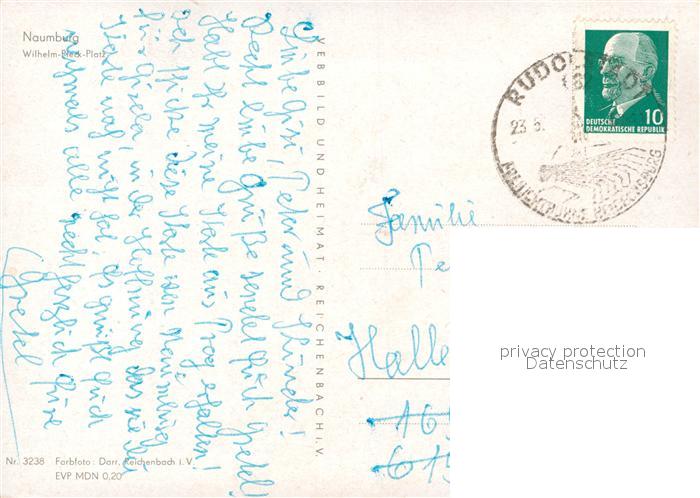 Naumburg
Wilhelm-Pieck-Platz
VEB BILD UND HEIMAT · REICHENBACH I. V.
Liebe Gisi, Peter und Kinder!
Recht liebe Grüße sendet Euch Gretel!
Habt Ihr meine Karte aus Prag erhalten?
Ich schicke diese Karte von Naumburg
für Gisela, in der Hoffnung, das sie die
Karte noch nicht hat, es grüßt Euch
nochmals alle recht herzlich Eure
Gretel
Nr. 3238 Farbfoto: Darr, Reichenbach i. V.
EVP MDN 0,20
RUDOLSTADT
23.5.
HEIDECKSBURG
10
DEUTSCHE
DEMOKRATISCHE REPUBLIK
Familie
Pe
Halle
privacy protection
Datenschutz